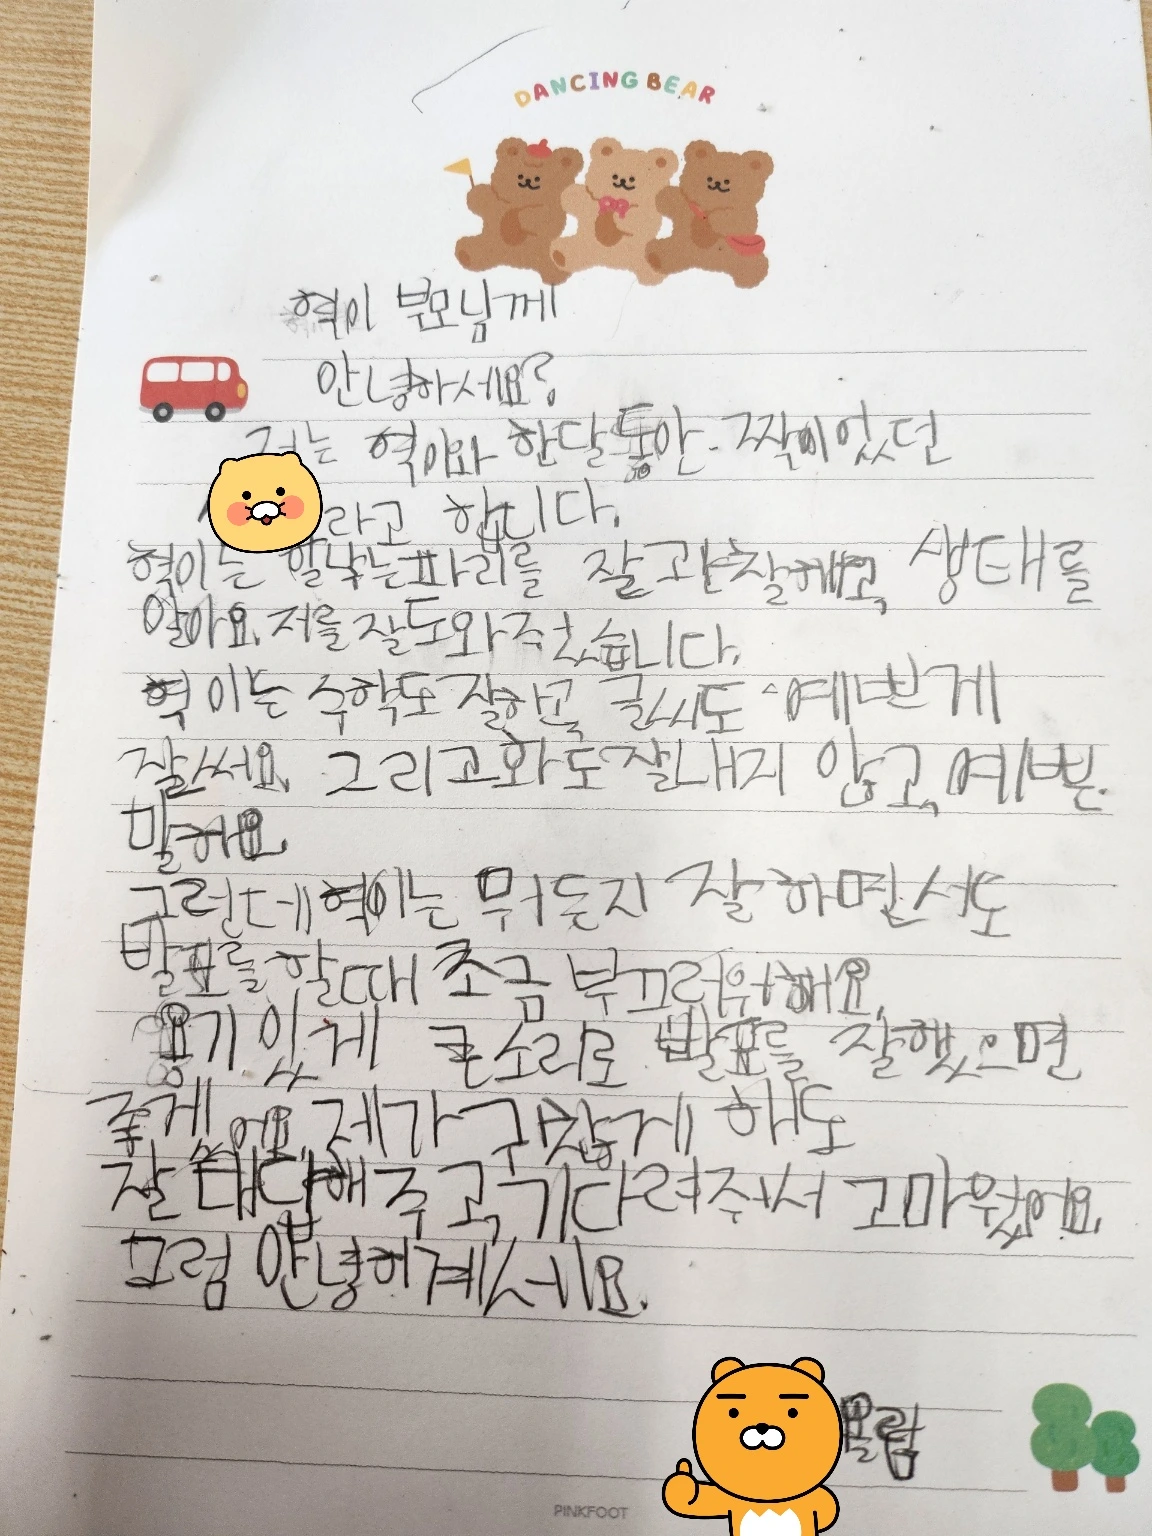 DANCING BEAR
혁이 부모님께
안녕하세요?
저는 혁이와 한달동안 짝이었던
라고 합니다.
혁이는 파리를 잘 관찰해고, 생태를
알아요. 저를 잘 도와주었습니다.
혁이는 수학도 잘하고, 글씨도 예쁘게
잘써요. 그리고 화도 잘내지 않고, 예쁜
말해요
그런데 혁이는 뭐든지 잘 하면서도
발표를 할때 조금 부끄러워해요.
용기 있게 큰소리로 발표를 잘했으면
좋겠어요. 제가 귀찮게 해도
잘 대답해주고, 기다려주셔서 고마웠어요.
그럼 안녕히계세요.
올림
PINKFOOT